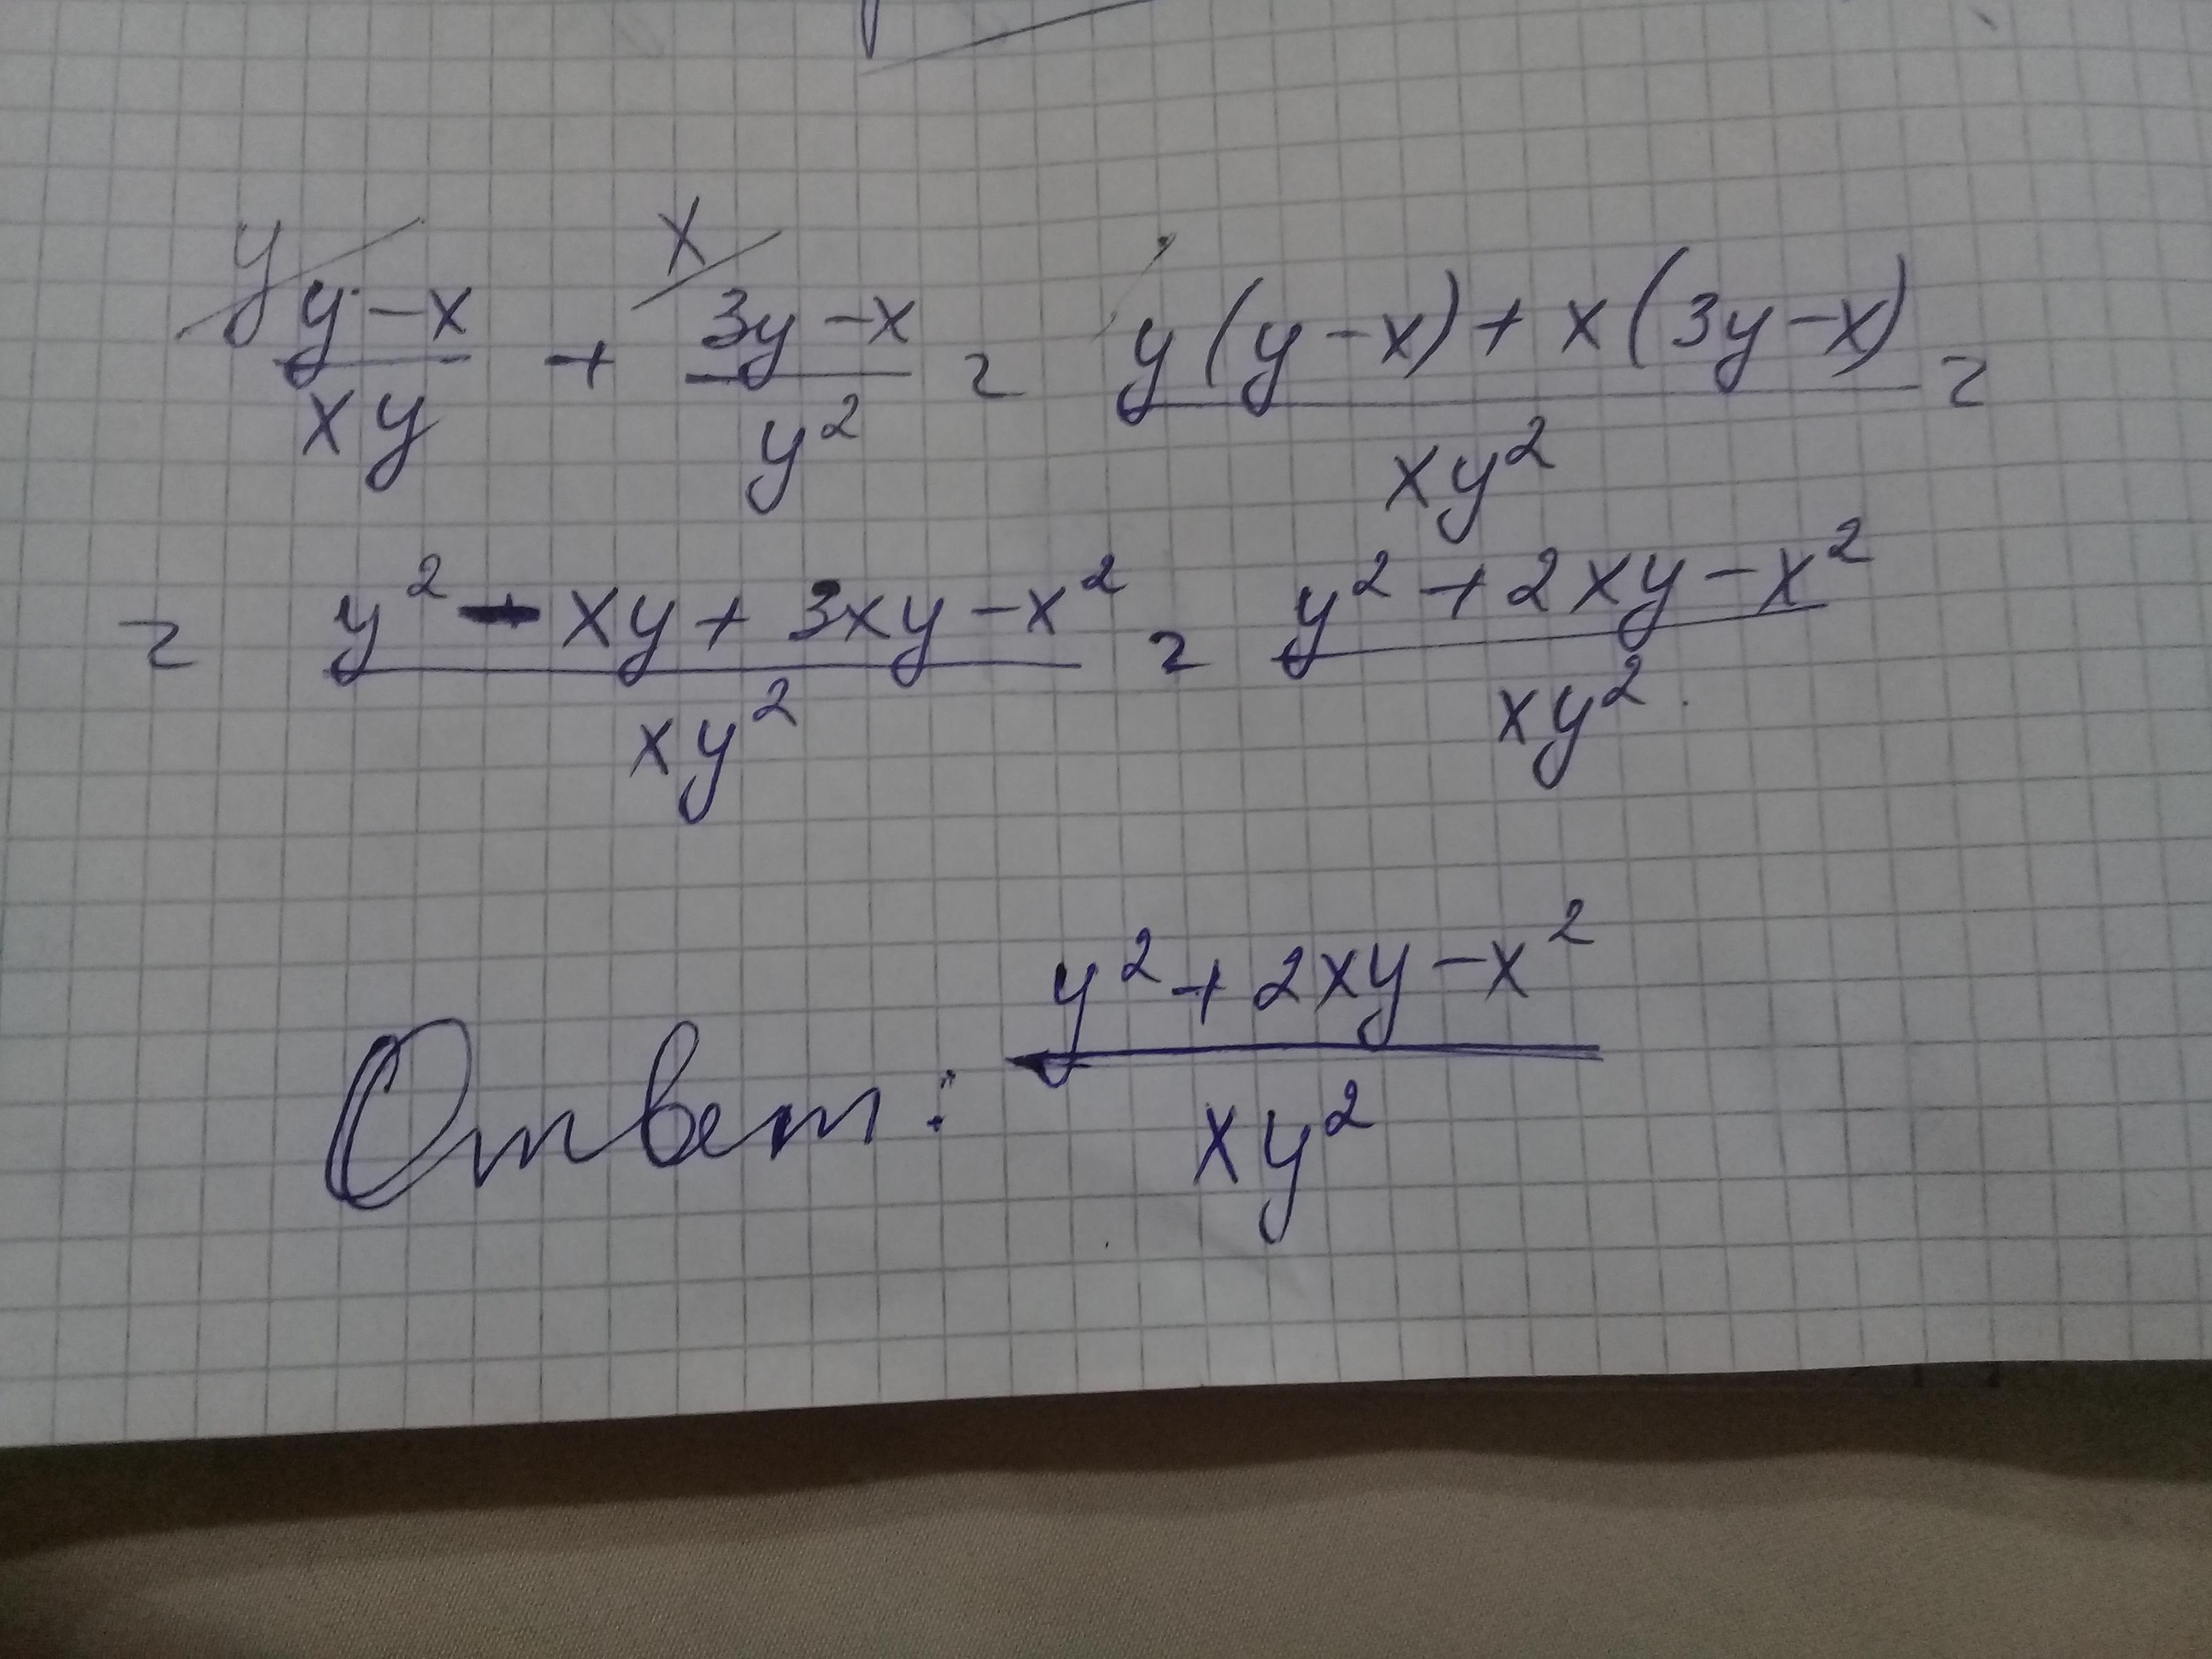 y/ (y-x)/(xy) + x/ (3y-x)/(y²) = (y(y-x)+x(3y-x))/(xy²) =
= (y²-xy+3xy-x²)/(xy²) = (y²+2xy-x²)/(xy²).
Ответ: (y²+2xy-x²)/(xy²)